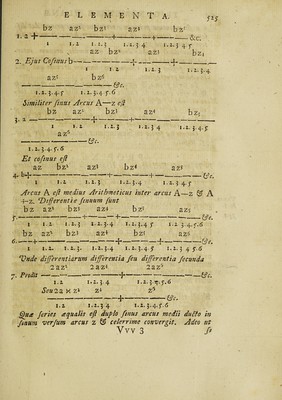 ELEMENTA. 525
bz az² bz³ az⁴ bz⁵
1. a + — — — — — + — — — + — — — &c.
1 1.2 1.2.3 1.2.3.4 1.2.3.4.5
az bz² az³ bz⁴
2. Ejus Cosinus b
1 1.2 1.2.3 1.2.3.4
az⁵ bz⁶
1.2.3.4.5 1.2.3.4.5.6
Similiter sinus Arcus A—z est
bz az² bz³ az⁴ bz⁵
3. a
1 1.2 1.2.3 1.2.3.4 1.2.3.4.5
az⁶
1.2.3.4.5.6
Et cosinus est
az bz² az³ bz⁴ az⁵
4. b+
1 1.2 1.2.3 1.2.3.4 1.2.3.4.5
Arcus A est medius Arithmeticus inter arcus A—z & A
+z. Differentiæ sinuum sunt
bz az² bz³ az⁴ bz⁵ az⁶
5. &c.
1 1.2 1.2.3 1.2.3.4 1.2.3.4.5 1.2.3.4.5.6
bz az² bz³ az⁴ bz⁵ az⁶
6. &c.
1 1.2 1.2.3 1.2.3.4 1.2.3.4.5 1.2.3.4.5.6
Unde differentiarum differentia seu differentia secunda
2az² 2az⁴ 2az⁶
7. Prodit &c.
1.2 1.2.3.4 1.2.3.4.5.6
Seu 2a × z² z⁴ z⁶
&c.
1.2 1.2.3.4 1.2.3.4.5.6
Quæ series æqualis est duplo sinus arcus medii ducto in
sinum versum arcus z & celerrime convergit. Adeo ut
Vvv 3 se